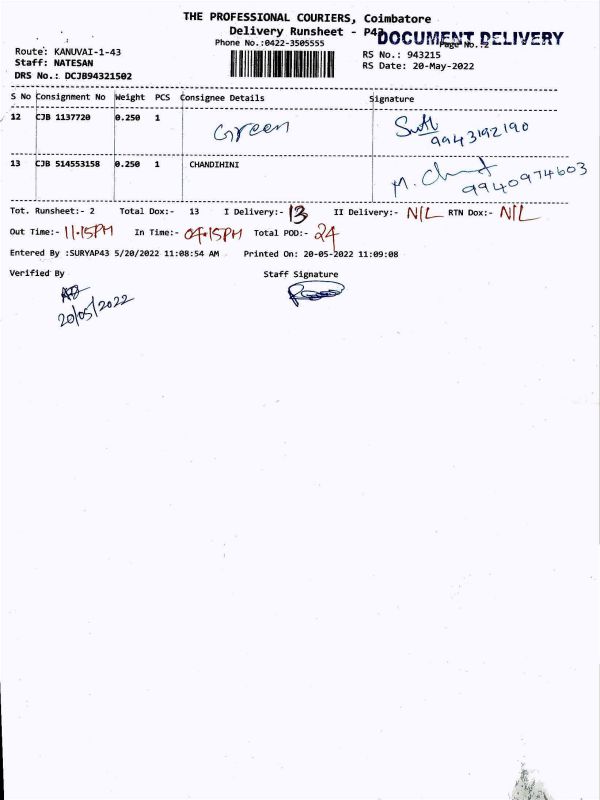 THE PROFESSIONAL COURIERS, Coimbatore
Delivery Runsheet - P43
DOCUMENT DELIVERY
Phone No.:0422-3505555
Page No.:2
Route: KANUVAI-1-43
Staff: NATESAN
DRS No.: DCJB94321502
RS No.: 943215
RS Date: 20-May-2022
S No Consignment No Weight PCS Consignee Details Signature
12 CJB 1137720 0.250 1 Green
9943192190
13 CJB 514553158 0.250 1 CHANDIHINI
9940974603
Tot. Runsheet:- 2 Total Dox:- 13 I Delivery:- 13 II Delivery:- NIL RTN Dox:- NIL
Out Time:- 11.15PM In Time:- 04.15PM Total POD:- 24
Entered By :SURYAP43 5/20/2022 11:08:54 AM Printed On: 20-05-2022 11:09:08
Verified By Staff Signature
20/05/2022